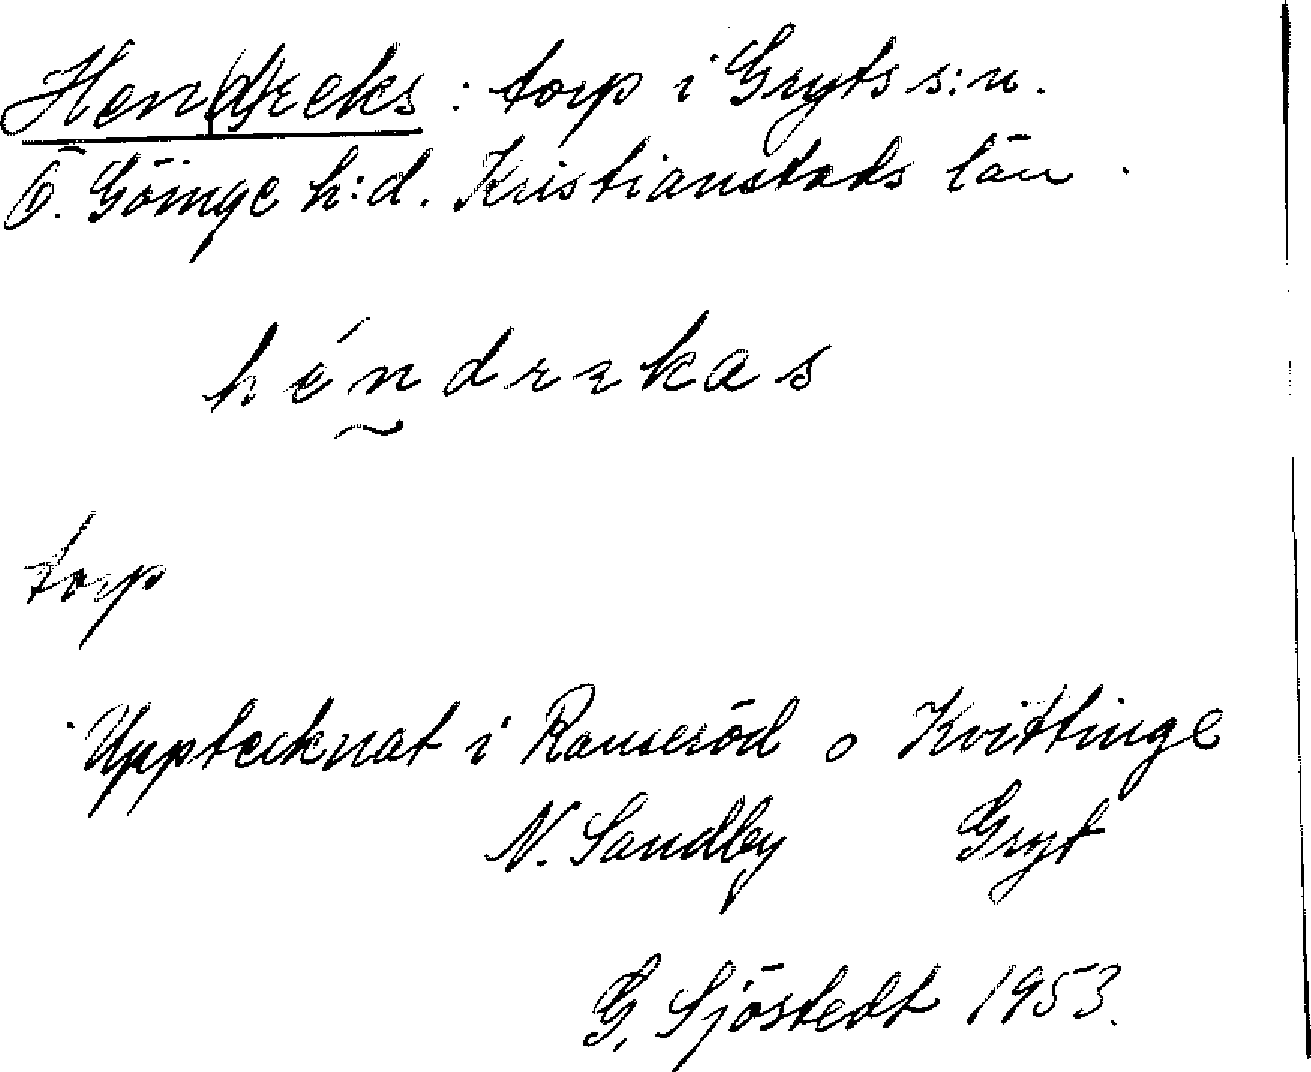 Hen(d)reks : torp i Gryts s:n.
Ö. Göinge h:d. Kristianstads län.
héndrækas
torp
Upptecknat i Ramseröd o Kvittinge
N. Sandby Gryt
G. Sjöstedt 1953.